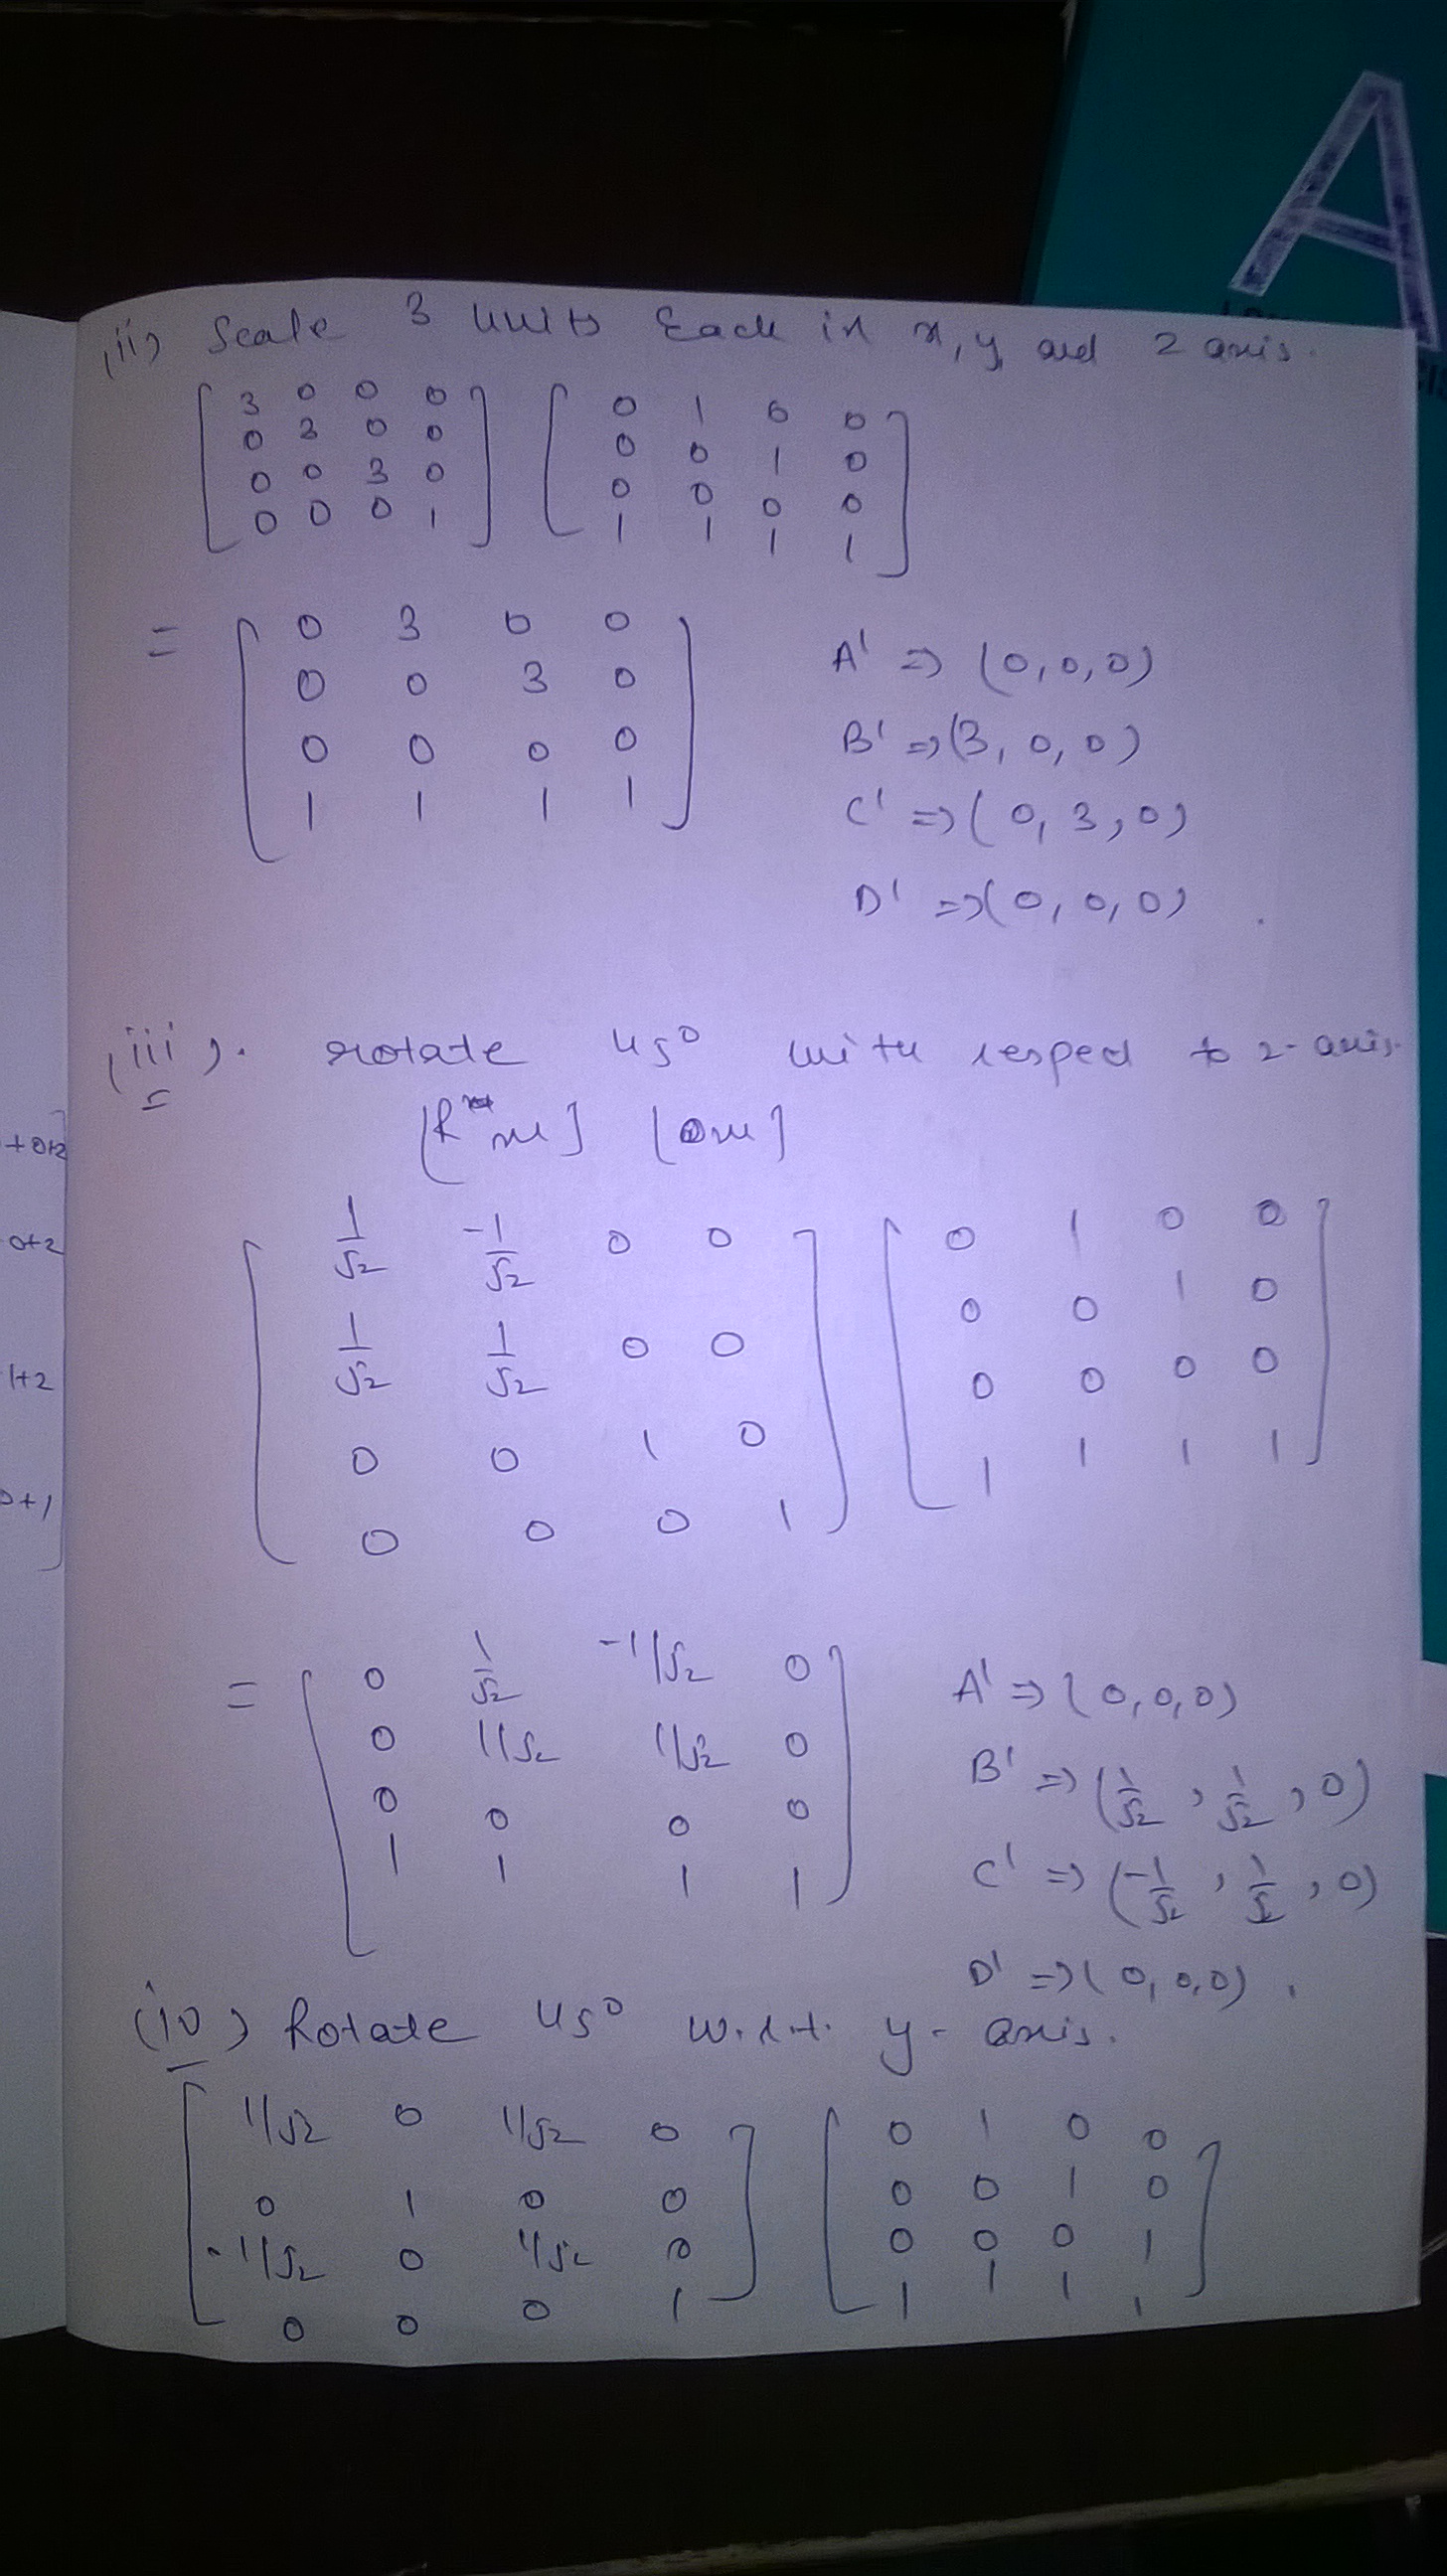 (ii) Scale 3 units Each in x, y and z axis.
[ 3 0 0 0 ] [ 0 1 0 0 ]
[ 0 3 0 0 ] [ 0 0 1 0 ]
[ 0 0 3 0 ] [ 0 0 0 0 ]
[ 0 0 0 1 ] [ 1 1 1 1 ]
= [ 0 3 0 0 ]
[ 0 0 3 0 ]
[ 0 0 0 0 ]
[ 1 1 1 1 ]
A' => (0,0,0)
B' => (3, 0, 0)
C' => (0, 3, 0)
D' => (0, 0, 0)
(iii). rotate 45° with respect to z-axis.
[ 1/√2 -1/√2 0 0 ] [ 0 1 0 0 ]
[ 1/√2 1/√2 0 0 ] [ 0 0 1 0 ]
[ 0 0 1 0 ] [ 0 0 0 0 ]
[ 0 0 0 1 ] [ 1 1 1 1 ]
= [ 0 1/√2 -1/√2 0 ]
[ 0 1/√2 1/√2 0 ]
[ 0 0 0 0 ]
[ 1 1 1 1 ]
A' => (0,0,0)
B' => (1/√2, 1/√2, 0)
C' => (-1/√2, 1/√2, 0)
D' => (0, 0, 0).
(iv) Rotate 45° w.r.t. y-axis.
[ 1/√2 0 1/√2 0 ] [ 0 1 0 0 ]
[ 0 1 0 0 ] [ 0 0 1 0 ]
[ -1/√2 0 1/√2 0 ] [ 0 0 0 1 ]
[ 0 0 0 1 ] [ 1 1 1 1 ]
+0+2
0+2
1+2
0+1
A